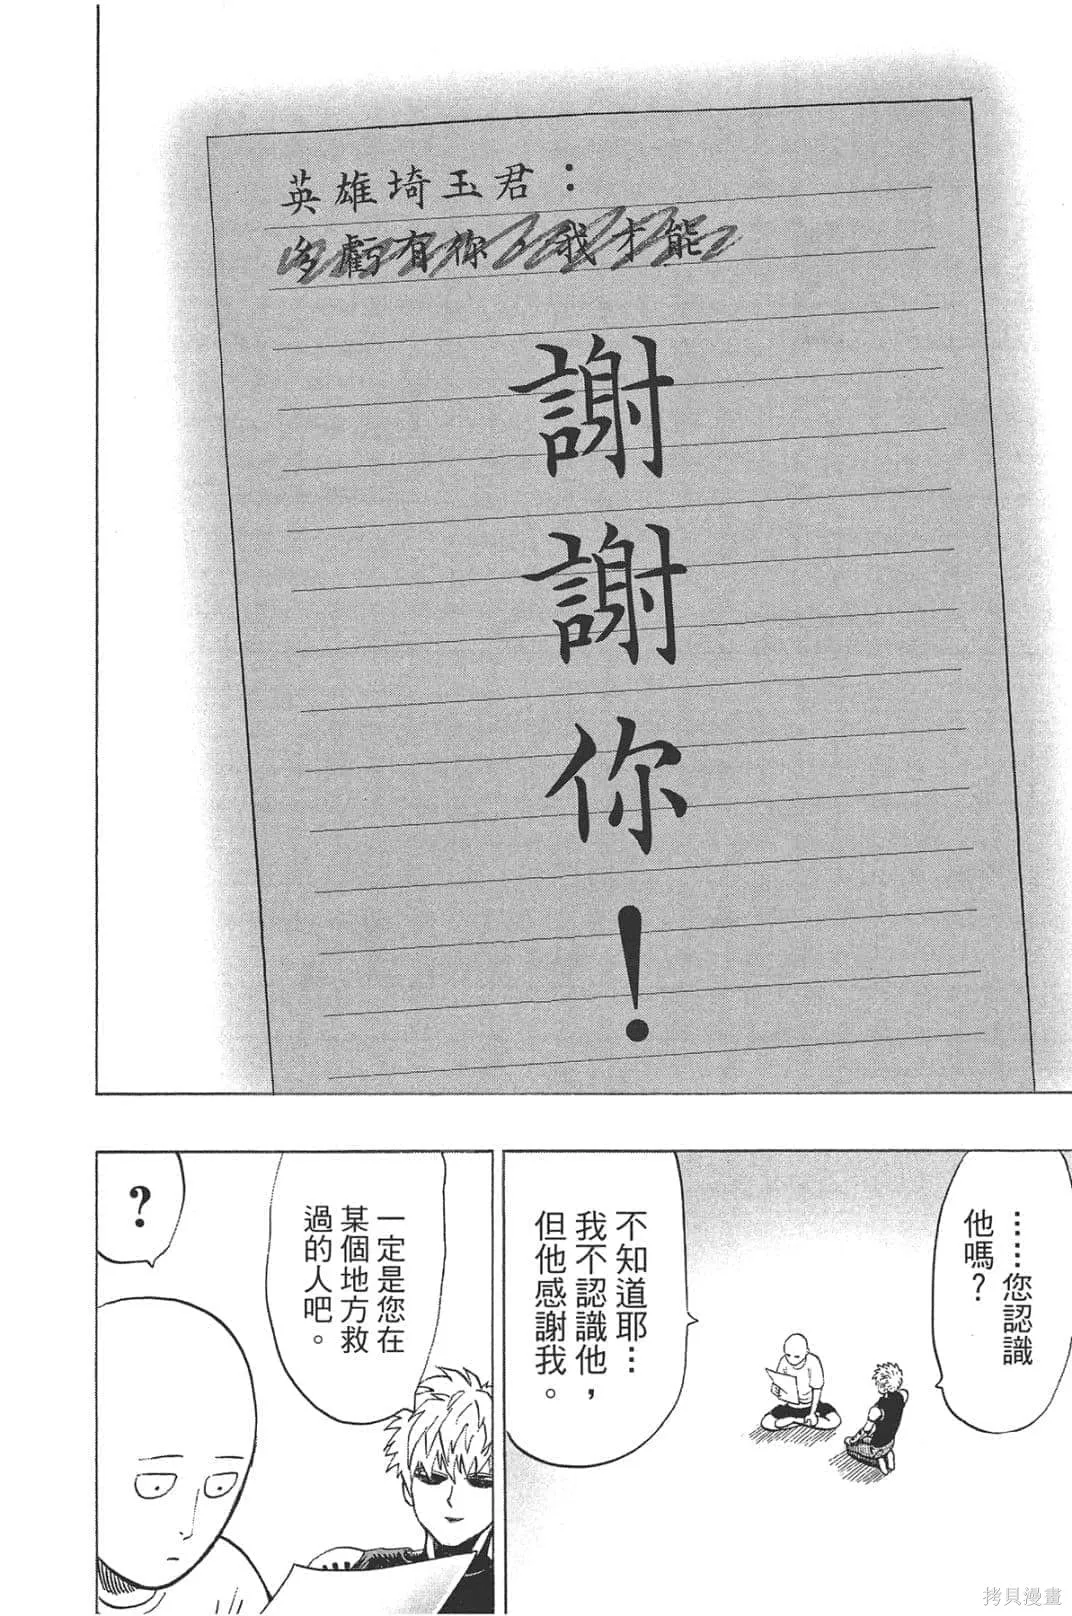 英雄埼玉君：
多虧有你，我才能
謝謝你！
……您認識
他嗎？
不知道耶…
我不認識他，
但他感謝我。
一定是您在
某個地方救
過的人吧。
？
拷貝漫畫